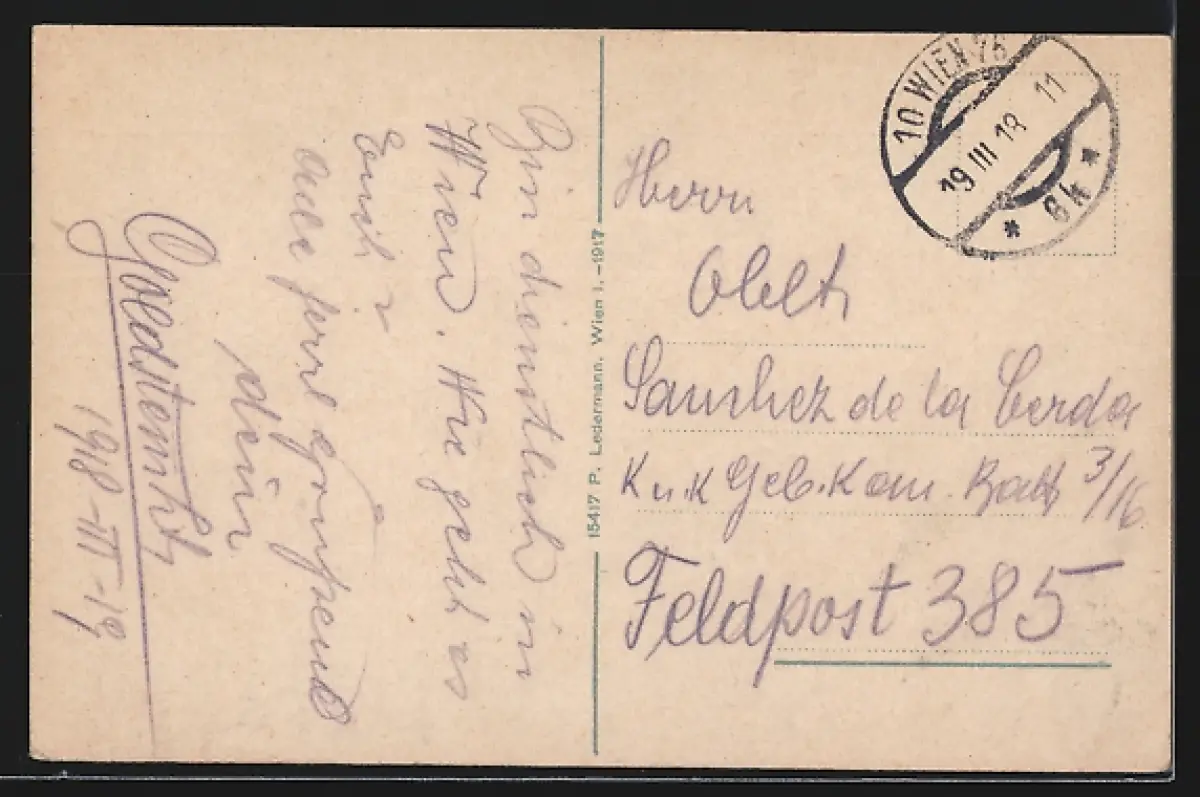 Bin dienstlich in
Wien. Wie geht es
Euch?
Alle
Dein
1918-III-19
15417 P. Ledermann, Wien I. -1917
10 WIEN 76
19 III 18 11
* 6k *
Herrn
Oblt
Sanchez de la Cerda
K u K Geb. Kan. Batt 3/16
Feldpost 385